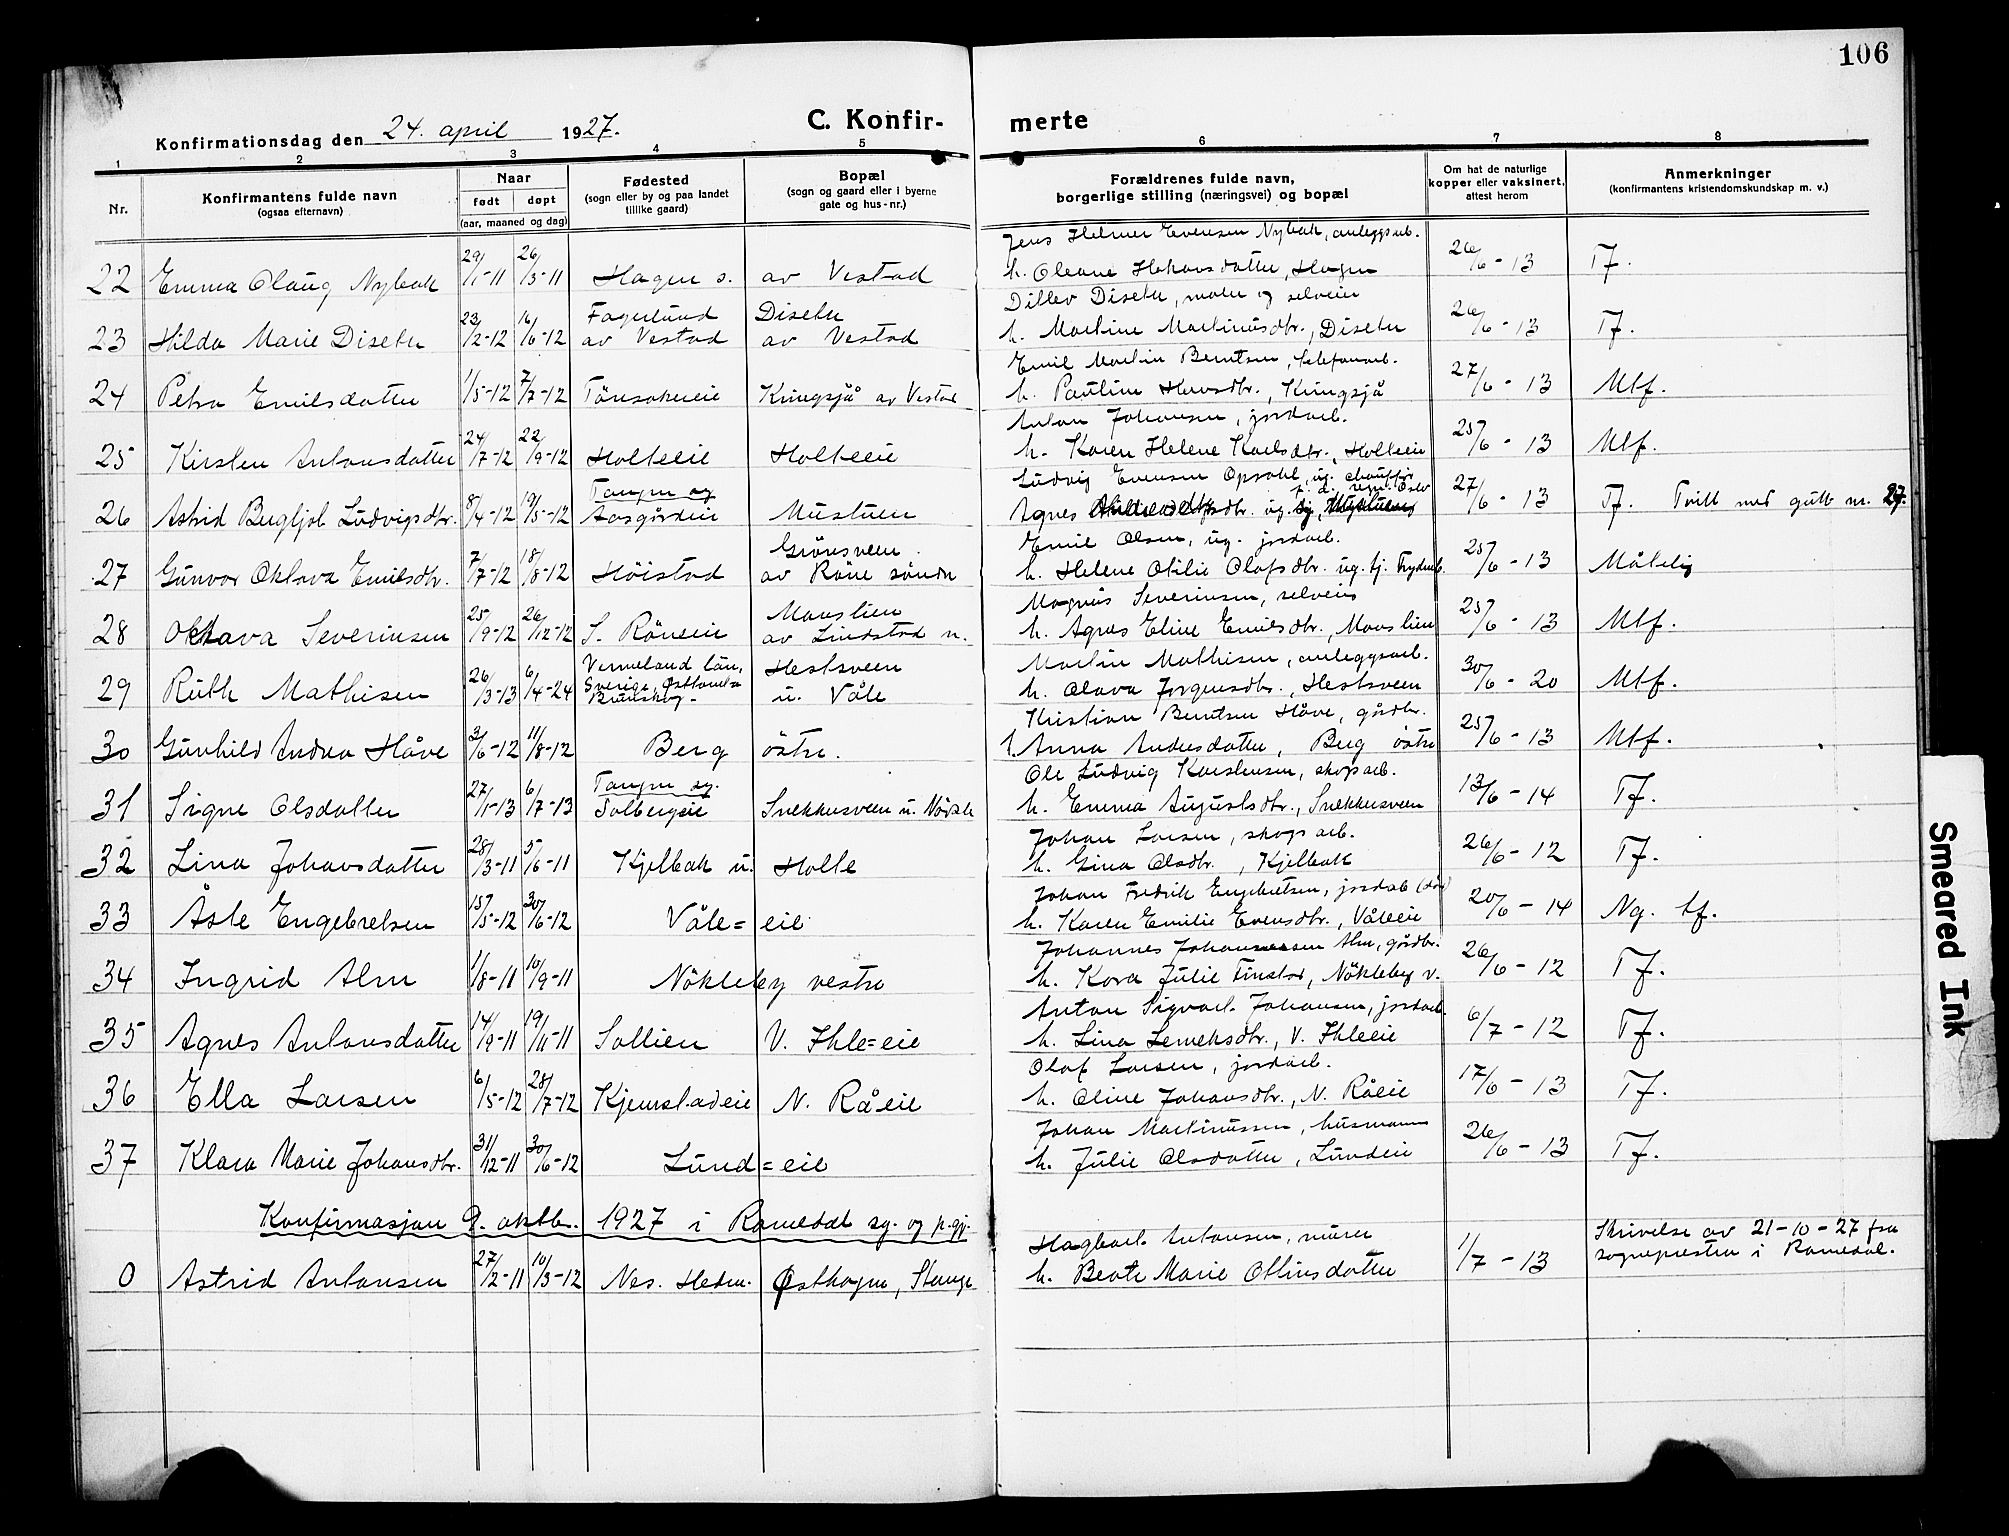 106
Konfirmationsdag den 24. april 1927.
C. Konfir-
merte
1 2 3 4 5 6 7 8
Nr.
Konfirmantens fulde navn
(ogsaa efternavn)
Naar
født døpt
(aar, maaned og dag)
Fødested
(sogn eller by og paa landet
tillike gaard)
Bopæl
(sogn og gaard eller i byerne
gate og hus-nr.)
Forældrenes fulde navn,
borgerlige stilling (næringsvei) og bopæl
Om hat de naturlige
kopper eller vaksinert,
attest herom
Anmerkninger
(konfirmantens kristendomskundskap m. v.)
Jens Helmer Evensen Nybak, anleggsarb.
22 Emma Olaug Nybak 29/1-11 26/3-11 Hagen s. av Vestad h. Oleane Hakonsdatter, Hagen 26/6-13 Tf.
Fagerlund Diseter Ditlev Diseter, maler og selveier
23 Hilda Marie Diseter 23/2-12 16/6-12 av Vestad av Vestad h. Martine Martinusdtr., Diseter 26/6-13 Tf.
Emil Martin Berntsen, telefonarb.
24 Petra Emilsdatter 1/5-12 7/7-12 Tönsakereie Kringsjå av Vestad h. Pauline Hansdtr., Kringsjå 27/6-13 Mtf.
Anton Johansen, jordarb.
25 Kirsten Antonsdatter 24/7-12 22/9-12 Holteeie Holteeie h. Karen Helene Karlsdtr., Holteeie 25/6-13 Mtf.
Tangen sg Ludvig Evensen Opsahl, ug. chauffør
26 Astrid Bergljot Ludvigsdtr. 8/4-12 19/5-12 Aasgårdeie Mustuen Agnes 27/6-13 Tf. Tvill med gutt nr. 27.
Grönsveen Emil Olsen, ug. jordarb.
27 Gunvor Oktava Emilsdtr. 7/7-12 18/8-12 Höistad av Röne söndre h. Helene Otilie Olafsdtr. ug. tj. 25/6-13 Måtelig
Maaslien Magnus Severinsen, selveier
28 Oktava Severinsen 25/9-12 26/12-12 S. Röneeie av Lindstad n. h. Agnes Eline Emilsdtr., Maaslien 25/6-13 Mtf.
Vermeland län, Hestsveen Martin Mathisen, anleggsarb.
Sverige,
29 Ruth Mathisen 26/3-13 6/4-24 Brunskog- u. Våle h. Olava Jörgensdtr., Hestsveen 30/6-20 Mtf.
Kristian Berntsen Håve, gårdbr.
30 Gunhild Andrea Håve 3/6-12 11/8-12 Berg östre. h. Anna Andersdatter, Berg östre 25/6-13 Mtf.
Tangen sg. Ole Ludvig Karstensen, skogsarb.
31 Signe Olsdatter 27/1-13 6/7-13 Solbergeie Snekkusveen u. Nordre h. Emma Augustsdtr., Snekkusveen 13/6-14 Tf.
Johan Larsen, skogsarb.
32 Lina Johansdatter 28/3-11 5/6-11 Kjelbak u. Holte h. Gina Olsdtr., Kjelbak 26/6-12 Tf.
Johan Fredrik Engebretsen, jordarb (död)
33 Åsle Engebretsen 15/5-12 30/6-12 Våle=eie h. Karen Emilie Evensdtr., Våleeie 20/6-14 Ng. tf.
Johannes Johannessen Alm, gårdbr.
34 Ingrid Alm 1/8-11 10/9-11 Nökleby vestre h. Kara Julie Finstad, Nökleby v. 26/6-12 Tf.
Anton Sigvart Johansen, jordarb.
35 Agnes Antonsdatter 14/9-11 19/11-11 Sollien V. Ihle=eie h. Lina Lemeksdtr., V. Ihleeie 6/7-12 Tf.
Olaf Larsen, jordarb.
36 Ella Larsen 6/5-12 28/7-12 Kjemstadeie N. Råeie h. Oline Johansdtr., N. Råeie 17/6-13 Tf.
Johan Martinussen, husmann
37 Klara Marie Johansdtr. 31/12-11 30/6-12 Lund=eie h. Julie Olsdatter, Lundeie 26/6-13 Tf.
Konfirmasjon 9. oktbr. 1927 i Romedal sg. og p.gj.
Hagbart Antonsen, murer Skrivelse av 21-10-27 fra
0 Astrid Antonsen 27/12-11 10/3-12 Nes. Hedm. Østhagen, Stange h. Beate Marie Ottinsdatter 1/7-13 sognepresten i Romedal.
Smeared Ink